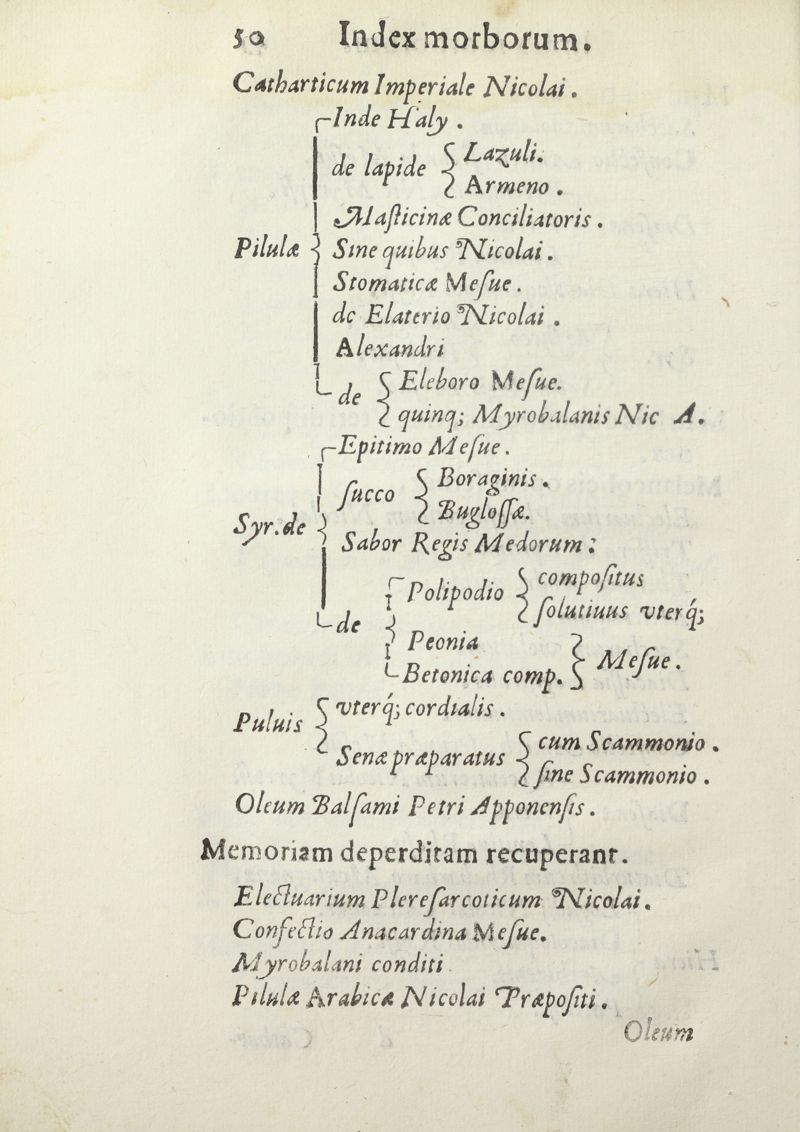 50 Index morborum.
Catharticum Imperiale Nicolai.
Inde Haly.
de lapide Lazuli.
Armeno.
Masticinæ Conciliatoris.
Pilulæ Sine quibus Nicolai.
Stomaticæ Mesue.
de Elaterio Nicolai.
Alexandri
de Eleboro Mesue.
quinq; Myrobalanis Nic A.
Epitimo Mesue.
succo Boraginis.
Buglossæ.
Syr. de
Sabor Regis Medorum:
Polipodio compositus
solutiuus vterq́;
de
Peonia
Betonica comp. Mesue.
Puluis vterq́; cordialis.
Senæ præparatus cum Scammonio.
sine Scammonio.
Oleum Balsami Petri Apponensis.
Memoriam deperditam recuperant.
Electuarium Pleresarcoticum Nicolai.
Confectio Anacardina Mesue.
Myrobalani conditi.
Pilulæ Arabicæ Nicolai Præpositi.
Oleum